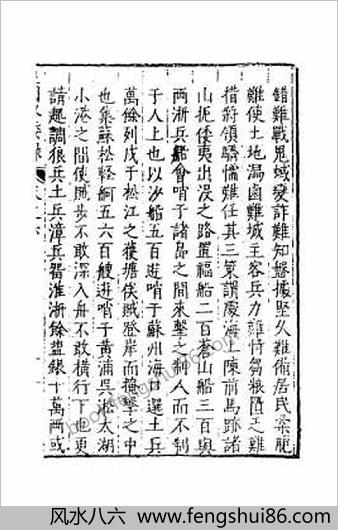 錯難戰鬼蜮變詐難知盤據堅久難備居民柔脆
難使土地漏鹵難城主客兵力難恃芻粮匱乏難
措將領驕懦難任其三策謂慶海上陳前馬跡諸
山扼倭夷出沒之路置福船二百蒼山船三百與
兩浙兵船會哨于諸島之間來擊之
于人上也以沙船五百遊哨于蘇州海口選土兵
萬餘列戍于松江之護塘俟賊登岸而掩擊之中
也集蘇松輕舸五六百艘遊哨于黃浦吳淞太湖
小港之間使賊步不敢深入舟不敢橫行下也更
請趣調狼兵土兵漳兵留淮浙餘鹽銀十萬兩或
风水八六 www.fengshui86.com